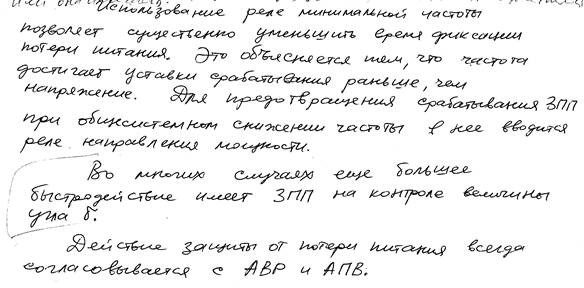 Использование реле минимальной частоты
позволяет существенно уменьшить время фиксации
потери питания. Это объясняется тем, что частота
достигает уставки срабатывания раньше, чем
напряжение. Для предотвращения срабатывания ЗПП
при общесистемном снижении частоты в нее вводится
реле направления мощности.
Во многих случаях еще большее
быстродействие имеет ЗПП на контроле величины
угла δ.
Действие защиты от потери питания всегда
согласовывается с АВР и АПВ.